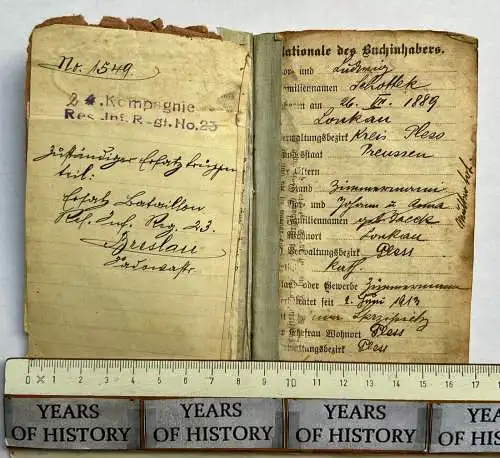 No. 1549.
2 . Kompagnie
Res. Inf. R gt. No. 23
Zuständiger Ersatztruppen
teil:
Ersatz Bataillon
Res. Inf. Reg. 23.
Breslau
Nationale des Buchinhabers.
und Ludwig
Familiennamen Schottek
am 26. 1889
Lonkau
Verwaltungsbezirk Kreis Pless
Preussen
Eltern
Stand Zimmermann
und Johann u. Anna
Familiennamen geb.
Wohnort Lonkau
Verwaltungsbezirk Pless
kath.
oder Gewerbe Zimmermann
seit 2. Juni 1913
Ehefrau Wohnort Pless
Verwaltungsbezirk Pless
0 1 2 3 4 5 6 7 8 9 10 11 12 13 14 15 16 17 18
YEARS OF HISTORY YEARS OF HISTORY YEARS OF HISTORY YEARS OF HISTORY